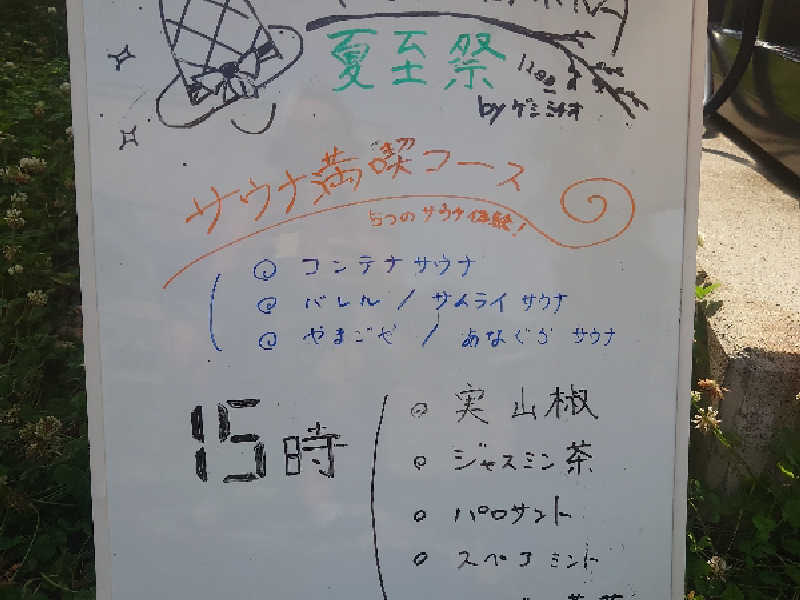 夏至祭
サウナ満喫コース
5つのサウナ体験!
コンテナサウナ
バレル / サムライサウナ
やまごや / あなぐら サウナ
15時
実山椒
ジャスミン茶
パロサント
スペアミント